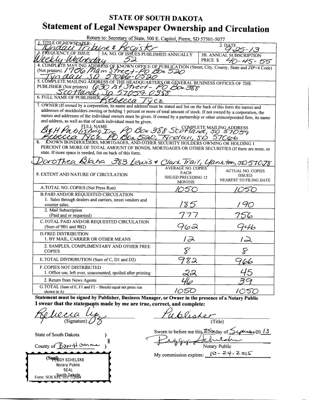 STATE OF SOUTH DAKOTA
Statement of Legal Newspaper Ownership and Circulation
Return to: Secretary of State, 500 E. Capitol, Pierre, SD 57501-5077
1. TITLE OF NEWSPAPER
Tyndall Tribune & Register
2. DATE
9-25-13
3. FREQUENCY OF ISSUE
Weekly Wednesday
3A. NO. OF ISSUES PUBLISHED ANNUALLY
52
3B. ANNUAL SUBSCRIPTION
PRICE $ 40-45-55
4. COMPLETE MAILING ADDRESS OF KNOWN OFFICE OF PUBLICATION (Street, City, County, State and ZIP+4 Code)
(Not printers)
Main Street - PO Box 520
Tyndall SD 57066-0520
5. COMPLETE MAILING ADDRESS OF THE HEADQUARTERS OF GENERAL BUSINESS OFFICE OF THE
PUBLISHER (Not printers) 630 1st Street - PO Box 358
Scotland, SD 57059-0358
6. FULL NAME OF PUBLISHER:
Rebecca Tycz
7. OWNER (If owned by a corporation, its name and address must be stated and list on the back of this form the names and
addresses of stockholders owning or holding 1 percent or more of total amount of stock. If not owned by a corporation, the
names and addresses of the individual owners must be given. If owned by a partnership or other unincorporated firm, its name
and address, as well as that of each individual must be given.
FULL NAME
COMPLETE MAILING ADDRESS
B & H Publishing Inc PO Box 358 Scotland, SD 57059
Rebecca Tycz PO Box 520, Tyndall, SD 57066
8. KNOWN BONDHOLDERS, MORTGAGES, AND OTHER SECURITY HOLDERS OWNING OR HOLDING 1
PERCENT OR MORE OF TOTAL AMOUNT OF BONDS, MORTGAGES OR OTHER SECURITIES (If there are none, so
state. If more space is needed, list on back of this form.
Dorothea Blaha 385 Lewis & Clark Trail, Yankton, SD 57078
9. EXTENT AND NATURE OF CIRCULATION
AVERAGE NO. COPIES
EACH
ISSUED PRECEDING 12
MONTHS
ACTUAL NO. COPIES
ISSUED
NEAREST TO FILING DATE
A. TOTAL NO. COPIES (Net Press Run)
1050
1050
B. PAID AND/OR REQUESTED CIRCULATION
1. Sales through dealers and carriers, street vendors and
counter sales.
185
190
2. Mail Subscription
(Paid and or requested)
777
756
C. TOTAL PAID AND/OR REQUESTED CIRCULATION
(Sum of 9B1 and 9B2)
962
946
D. FREE DISTRIBUTION
1. BY MAIL, CARRIER OR OTHER MEANS
12
12
2. SAMPLES, COMPLIMENTARY AND OTHER FREE
COPIES
8
8
E. TOTAL DISTRIBUTION (Sum of C, D1 and D2)
982
966
F. COPIES NOT DISTRIBUTED
1. Office use, left over, unaccounted, spoiled after printing
22
45
2. Return from News Agents
46
39
G. TOTAL (Sum of E, F1 and F2 - Should equal net press run
shown in A)
1050
1050
Statement must be signed by Publisher, Business Manager, or Owner in the presence of a Notary Public
I swear that the statements made by me are true, correct, and complete:
Rebecca Tycz
Publisher
(Signature)
(Title)
State of South Dakota
County of Bon Homme
Sworn to before me this 25th day of September 20 13
Peggy Schelske
Notary Public
My commission expires: 10-24-2015
PEGGY SCHELSKE
Notary Public
SEAL
South Dakota